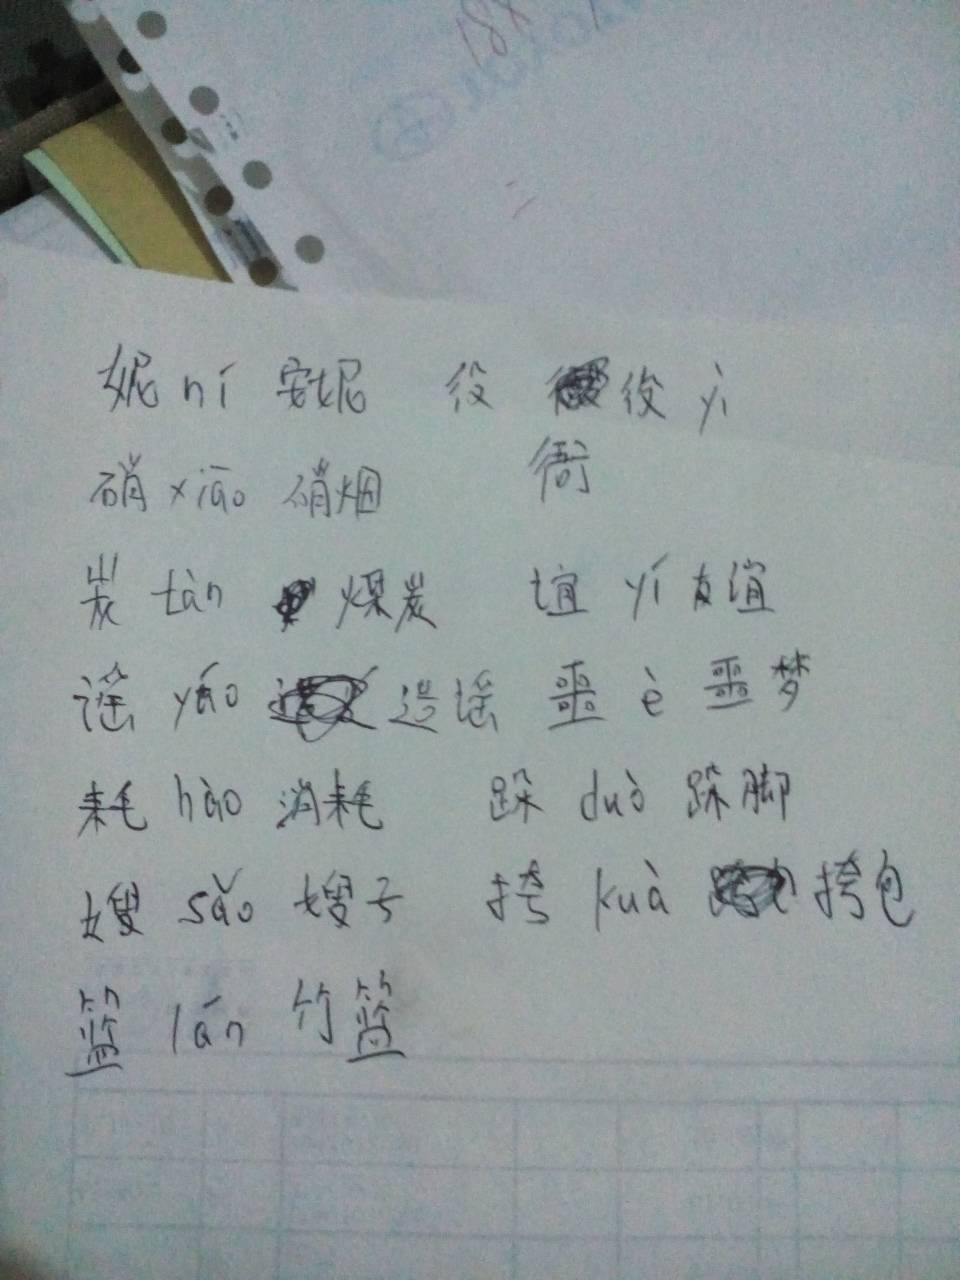 妮 ní 安妮 役 役 yì
硝 xiāo 硝烟 衙
炭 tàn 煤炭 谊 yí 友谊
谣 yáo 造谣 噩 è 噩梦
耗 hào 消耗 跺 duò 跺脚
嫂 sǎo 嫂子 挎 kuà 挎包
篮 lán 竹篮